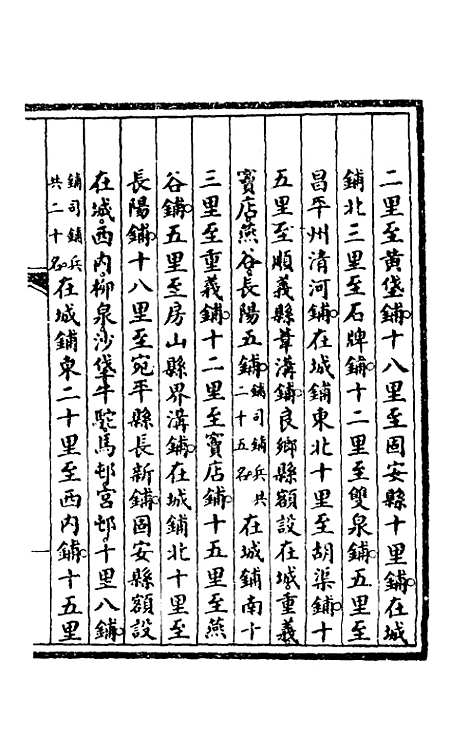 二里至黄垡鋪十八里至固安縣十里鋪在城
鋪北三里至石牌鋪十二里至雙泉鋪五里至
昌平州清河鋪在城鋪東北十里至胡渠鋪十
五里至順義縣葦溝鋪良鄉縣額設在城重義
竇店燕谷長陽五鋪鋪司鋪兵共二十五名在城鋪南十
三里至重義鋪十二里至竇店鋪十五里至燕
谷鋪五里至房山縣界溝鋪在城鋪北十里至
長陽鋪十八里至宛平縣長新鋪固安縣額設
在城西內柳泉沙垡牛駝馬邨宮邨十里八鋪
鋪司鋪兵共二十名在城鋪東二十里至西內鋪十五里